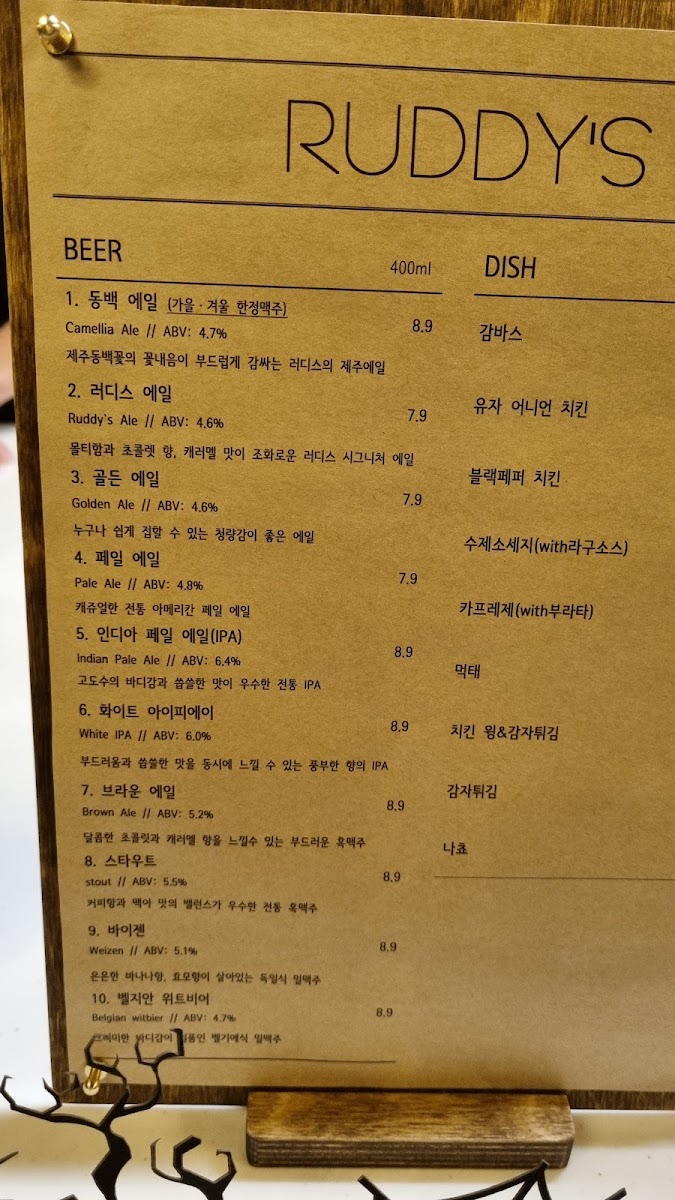 RUDDY'S
BEER
400ml
1. 동백 에일 (가을·겨울 한정맥주)
Camellia Ale // ABV: 4.7%
8.9
제주동백꽃의 꽃내음이 부드럽게 감싸는 러디스의 제주에일
2. 러디스 에일
Ruddy`s Ale // ABV: 4.6%
7.9
몰티함과 초콜렛 향, 캐러멜 맛이 조화로운 러디스 시그니처 에일
3. 골든 에일
Golden Ale // ABV: 4.6%
7.9
누구나 쉽게 접할 수 있는 청량감이 좋은 에일
4. 페일 에일
Pale Ale // ABV: 4.8%
7.9
캐쥬얼한 전통 아메리칸 페일 에일
5. 인디아 페일 에일(IPA)
Indian Pale Ale // ABV: 6.4%
8.9
고도수의 바디감과 씁쓸한 맛이 우수한 전통 IPA
6. 화이트 아이피에이
White IPA // ABV: 6.0%
8.9
부드러움과 씁쓸한 맛을 동시에 느낄 수 있는 풍부한 향의 IPA
7. 브라운 에일
Brown Ale // ABV: 5.2%
8.9
달콤한 초콜릿과 캐러멜 향을 느낄수 있는 부드러운 흑맥주
8. 스타우트
stout // ABV: 5.5%
8.9
커피향과 맥아 맛의 밸런스가 우수한 전통 흑맥주
9. 바이젠
Weizen // ABV: 5.1%
8.9
은은한 바나나향, 효모향이 살아있는 독일식 밀맥주
10. 벨지안 위트비어
Belgian witbier // ABV: 4.7%
8.9
크리미한 바디감이 벨기에식 밀맥주
DISH
감바스
유자 어니언 치킨
블랙페퍼 치킨
수제소세지(with라구소스)
카프레제(with부라타)
먹태
치킨 윙&감자튀김
감자튀김
나쵸